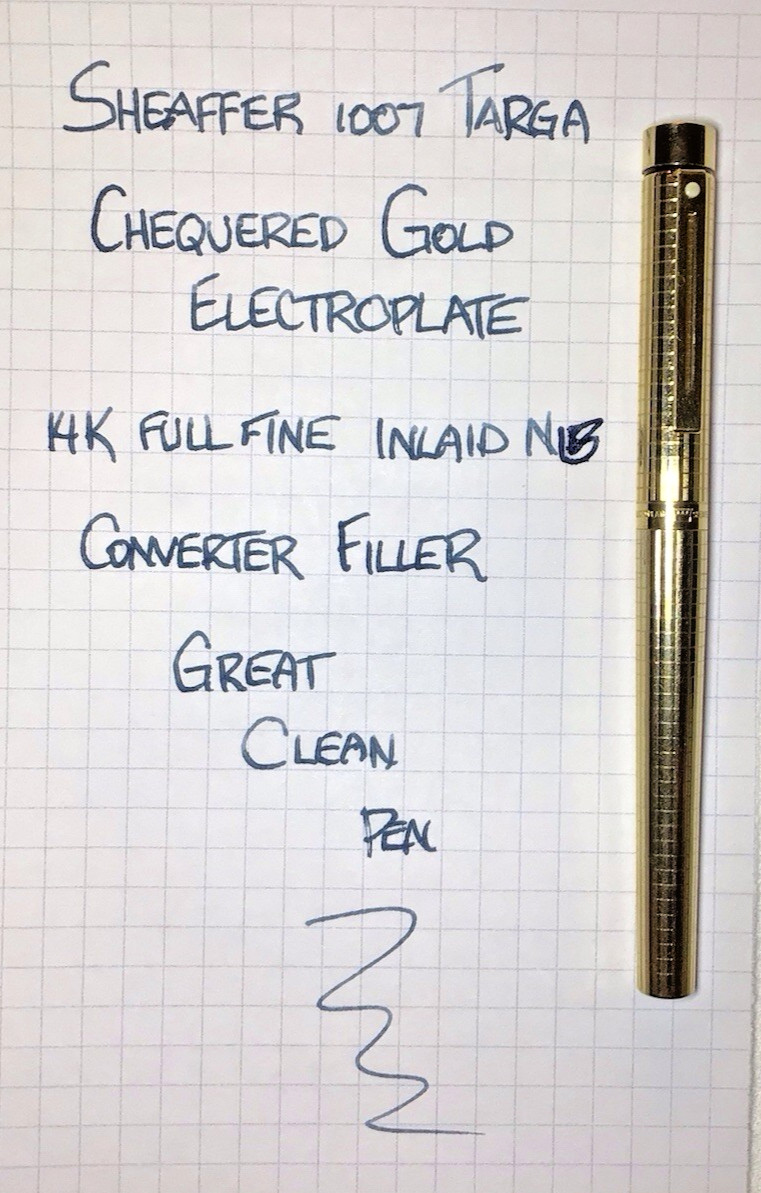 SHEAFFER 1007 TARGA
CHEQUERED GOLD
ELECTROPLATE
14K FULL FINE INLAID NIB
CONVERTER FILLER
GREAT
CLEAN
PEN